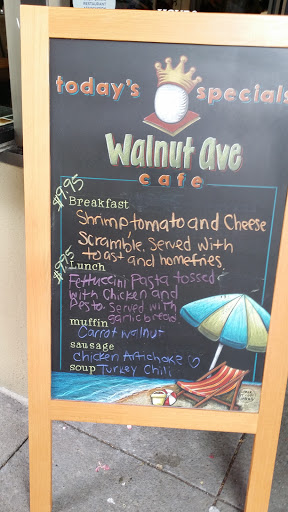 today's specials
Walnut ave
cafe
$9.95
Breakfast
Shrimp tomato and Cheese
Scramble. Served with
toast and homefries
$9.95
Lunch
Fettuccini Pasta tossed
with Chicken and
Pesto. Served with
garlic bread
muffin
Carrot walnut
sausage
Chicken Artichoke
soup Turkey Chili